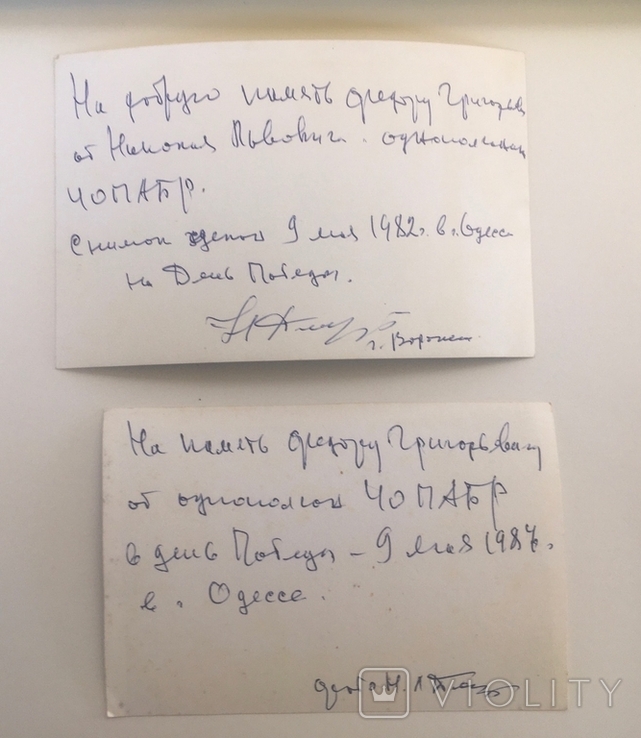 На добрую память Федору Григорьев
от Николая Львовича. однополчан
ЧОПАБР.
Снимок сделан 9 мая 1982г. в г. Одессе
на День Победы.
г. Воронеж
На память Федору Григорьевичу
от однополчан ЧОПАБР
в день Победы - 9 мая 1987г.
в г. Одессе.
VIOLITY